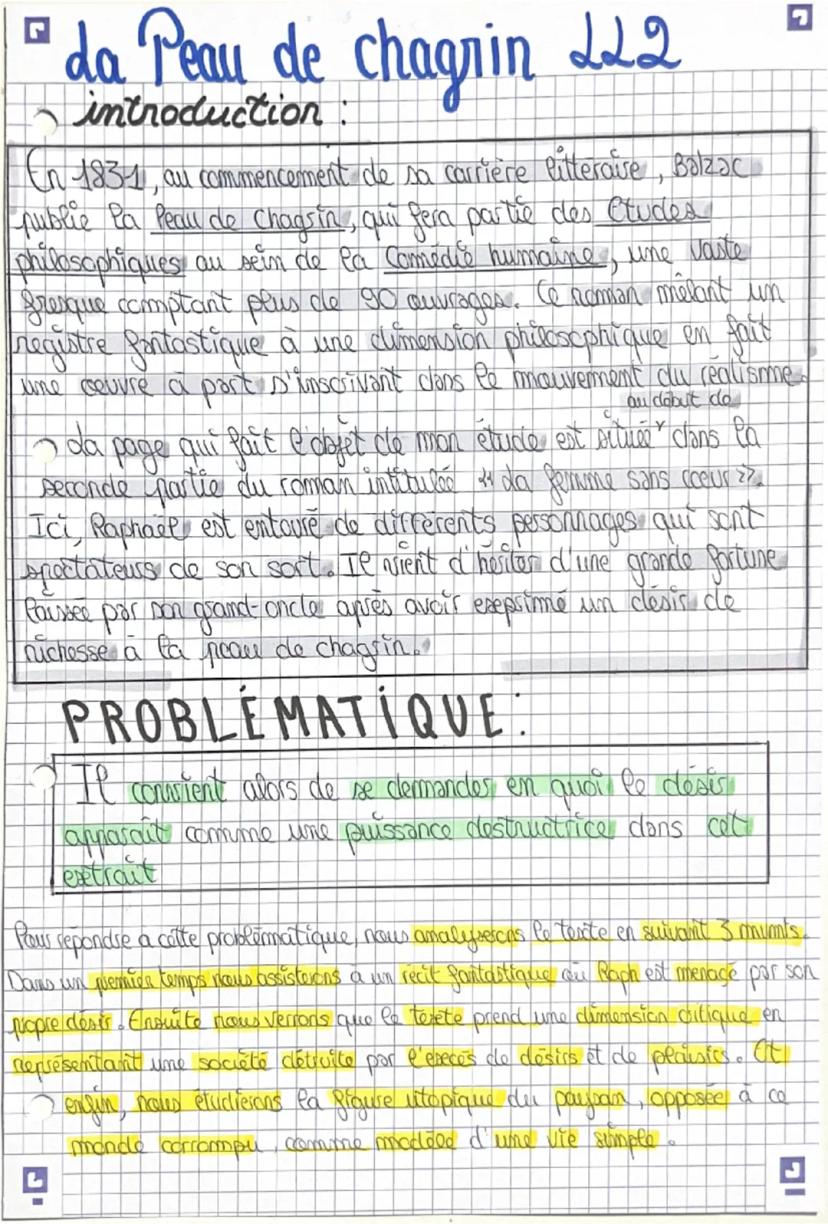 La Peau de chagrin LL2
introduction :
En 1831, au commencement de sa carrière littéraire, Balzac
publie la Peau de Chagrin, qui fera partie des Etudes
philosophiques au sein de la Comédie humaine, une vaste
fresque comptant plus de 90 ouvrages. Ce roman mêlant un
registre fantastique à une dimension philosophique en fait
une œuvre à part s'inscrivant dans le mouvement du réalisme.
au début de
La page qui fait l'objet de mon étude est située dans la
seconde partie du roman intitulée "La femme sans cœur".
Ici, Raphaël est entouré de différents personnages qui sont
spectateurs de son sort. Il vient d'hériter d'une grande fortune
laissée par son grand-oncle après avoir exeprimé un désir de
richesse à la peau de chagrin.
PROBLÉMATIQUE :
Il convient alors de se demander en quoi le désir
apparaît comme une puissance destructrice dans cet
extrait
Pour répondre a cette problématique, nous analyserons le texte en suivant 3 mvmts.
Dans un premier temps nous assisterons à un récit fantastique où Raph est menacé par son
propre désir. Ensuite nous verrons que le texte prend une dimension critique en
représentant une société détruite par l'excès de désirs et de plaisirs. Et
enfin, nous étudierons la figure utopique du paysan, opposée à ce
monde corrompu, comme modèle d'une vie simple.